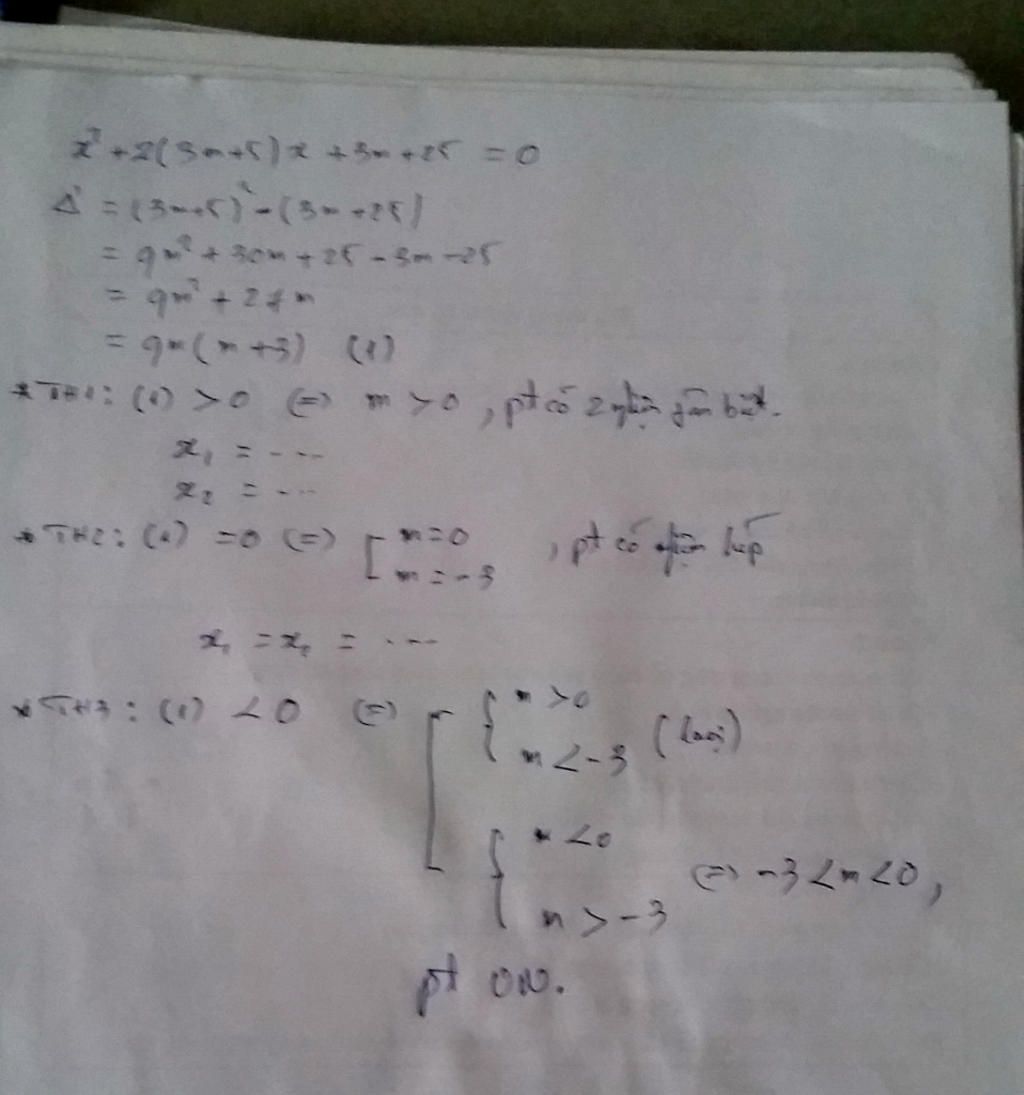 x² + 2(3m+5)x + 3m + 25 = 0
Δ' = (3m+5)² - (3m+25)
= 9m² + 30m + 25 - 3m - 25
= 9m² + 27m
= 9m(m+3) (1)
* TH1: (1) > 0 (=) m > 0, pt có 2 nghiệm phân biệt.
x₁ = ...
x₂ = ...
* TH2: (1) = 0 (=) [ m = 0
m = -3 , pt có nghiệm kép
x₁ = x₂ = ...
* TH3: (1) < 0 (=) [ { m > 0
m < -3 (loại)
{ m < 0
m > -3 (=) -3 < m < 0,
pt VN.